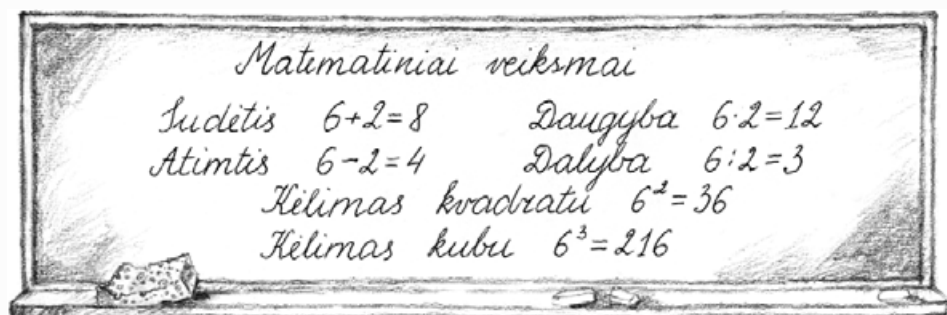 Matematiniai veiksmai
Sudėtis 6+2=8 Daugyba 6·2=12
Atimtis 6-2=4 Dalyba 6:2=3
Kėlimas kvadratu 6²=36
Kėlimas kubu 6³=216